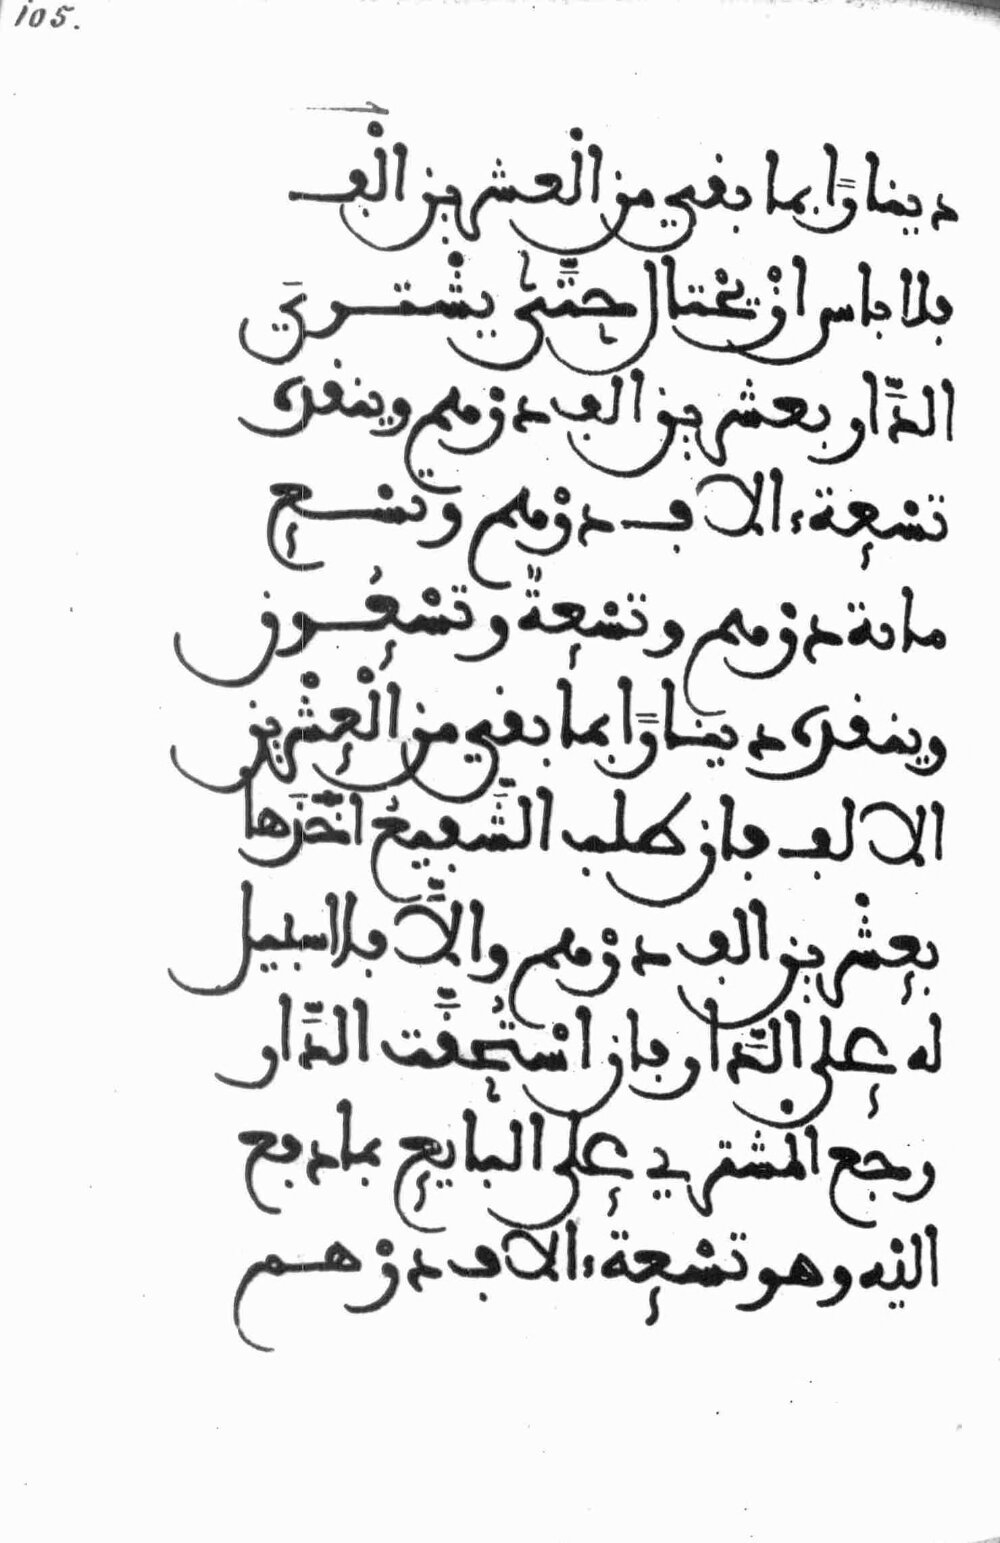 105.
دينارًا بما بقي من الْعشرين الْف
فلا باس ان يحْتال حتَّى يشْتري
الدَّار بعشرين الف درْهم وينقد
تسْعة ءالاف درْهم وتسْع
مائة درْهم وتسْعةً وتسْعُون
وينقد دينارًا بما بقي من الْعشْرين
الالف فان طلب الشَّفيعُ اخَذَها
بعشْرين الف درْهم والَّا فلا سبيل
له على الدَّار فان اسْتُحقَّت الدَّار
رجع المشتري على البايع بما دفع
اليْه وهو تسْعة ءالاف درْهم